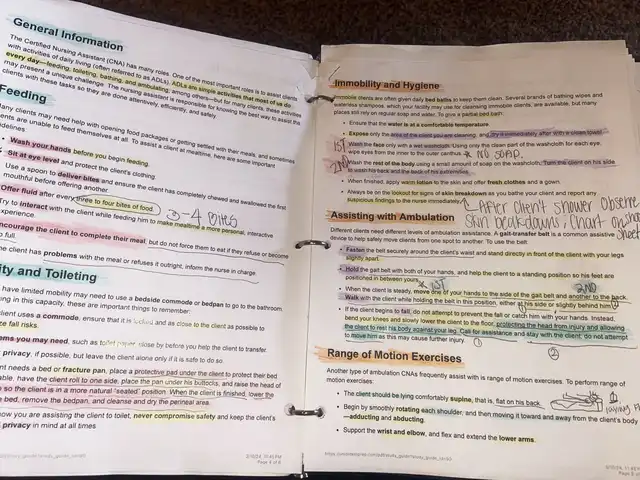 General Information
The Certified Nursing Assistant (CNA) has many roles. One of the most important roles is to assist clients
with activities of daily living (often referred to as ADLs). ADLs are simple activities that most of us do
every day—feeding, toileting, bathing, and ambulating, among others—but for many clients, these activities
may present a unique challenge. The nursing assistant is responsible for knowing the best way to assist the
clients with these tasks so they are done attentively, efficiently, and safely.
Feeding
Many clients may need help with opening food packages or getting settled with their meals, and sometimes
clients are unable to feed themselves at all. To assist a client at mealtime, here are some important
guidelines
Wash your hands before you begin feeding.
Sit at eye level and protect the client's clothing
Use a spoon to deliver bites and ensure the client has completely chewed and swallowed the first
mouthful before offering another
Offer fluid after every three to four bites of food.
3-4 BITES
Try to interact with the client while feeding him to make mealtime a more personal, interactive
experience.
Encourage the client to complete their meal, but do not force them to eat if they refuse or become
full.
the client has problems with the meal or refuses it outright, inform the nurse in charge.
ity and Toileting
have limited mobility may need to use a bedside commode or bedpan to go to the bathroom.
ing in this capacity, these are important things to remember:
client uses a commode, ensure that it is locked and as close to the client as possible to
fall risks.
ems you may need, such as toilet paper, close by before you help the client to transfer.
privacy, if possible, but leave the client alone only if it is safe to do so.
nt needs a bed or fracture pan, place a protective pad under the client to protect their bed
able, have the client roll to one side, place the pan under his buttocks, and raise the head of
so the client is in a more natural "seated" position. When the client is finished, lower the
e bed, remove the bedpan, and cleanse and dry the perineal area.
how you are assisting the client to toilet, never compromise safety and keep the client's
privacy in mind at all times
Immobility and Hygiene
Immobile clients are often given daily bed baths to keep them clean. Several brands of bathing wipes and
waterless shampoos, which your facility may use for cleansing immobile clients, are available, but many
places still rely on regular soap and water. To give a partial bed bath:
Ensure that the water is at a comfortable temperature.
Expose only the area of the client you are cleaning, and dry it immediately after with a clean towel.
1ST Wash the face only with a wet washcloth. Using only the clean part of the washcloth for each eye,
wipe eyes from the inner to the outer canthus. * NO SOAP.
2ND Wash the rest of the body using a small amount of soap on the washcloth. Turn the client on his side
to wash his back and the back of his extremities.
When finished, apply warm lotion to the skin and offer fresh clothes and a gown.
Always be on the lookout for signs of skin breakdown as you bathe your client and report any
suspicious findings to the nurse immediately.
After client shower observe
skin breakdowns, chart on shower
sheet
Assisting with Ambulation
Different clients need different levels of assistance ambulating. A gait-transfer belt is a common assistive
device to help safely move clients from one spot to another. To use the belt:
Fasten the belt securely around the client's waist and stand directly in front of the client with your legs
slightly apart.
Hold the gait belt with both of your hands, and help the client to a standing position so his feet are
positioned in between yours. * 1ST 2ND
When the client is steady, move one of your hands to the side of the gait belt and another to the back.
Walk with the client while holding the belt in this position, either at his side or slightly behind him.
If the client begins to fall, do not attempt to prevent the fall or catch him with your hands. Instead,
bend your knees and slowly lower the client to the floor, protecting the head from injury and allowing
the client to rest his body against your leg. Call for assistance and stay with the client; do not attempt
to move him as this may cause further injury. 1
2
Range of Motion Exercises
Another type of ambulation CNAs frequently assist with is range of motion exercises. To perform range of
motion exercises:
The client should be lying comfortably supine, that is, flat on his back.
Begin by smoothly rotating each shoulder, and then moving it toward and away from the client's body
—adducting and abducting.
Support the wrist and elbow, and flex and extend the lower arms.